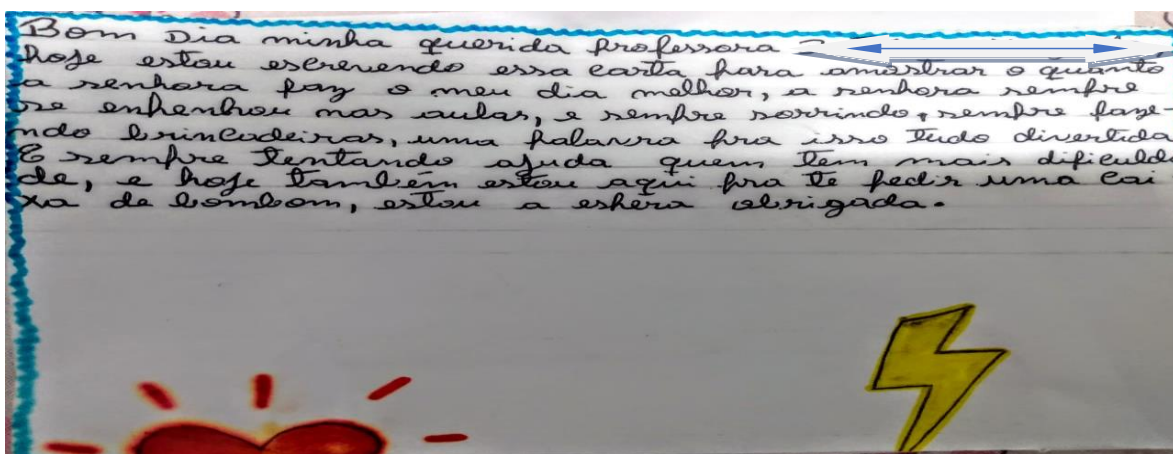 Bom Dia minha querida professora
hoje estou escrevendo essa carta para amostrar o quanto
a senhora faz o meu dia melhor, a senhora sempre
se enpenhou nas aulas, e sempre sorrindo, sempre faze-
ndo brincadeiras, uma palavra pra isso tudo divertida
E sempre tentando ajuda quem tem mais dificulda
de, e hoje também estou aqui pra te pedir uma cai
xa de bombom, estou a espera obrigada.